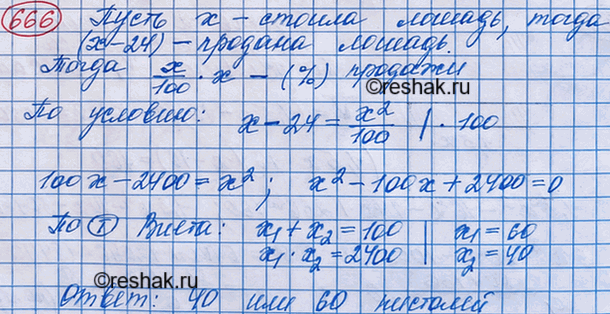 666 Пусть x - стоила лошадь, тогда
(x-24) - продана лошадь.
Тогда x/100 · x - (%) продажи
©reshak.ru
По условию: x - 24 = x²/100 | · 100
100x - 2400 = x² ; x² - 100x + 2400 = 0
По Т Виета: x₁ + x₂ = 100 | x₁ = 60
x₁ · x₂ = 2400 | x₂ = 40
©reshak.ru
Ответ: 40 или 60 пистолей